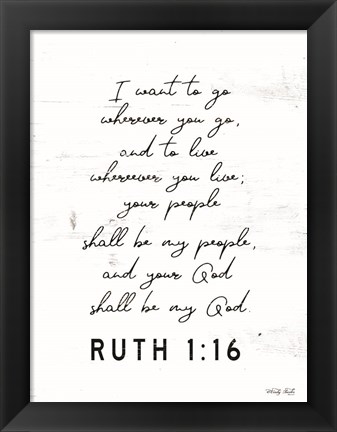 I want to go
wherever you go,
and to live
whereever you live;
your people
shall be my people,
and your God
shall be my God.
RUTH 1:16